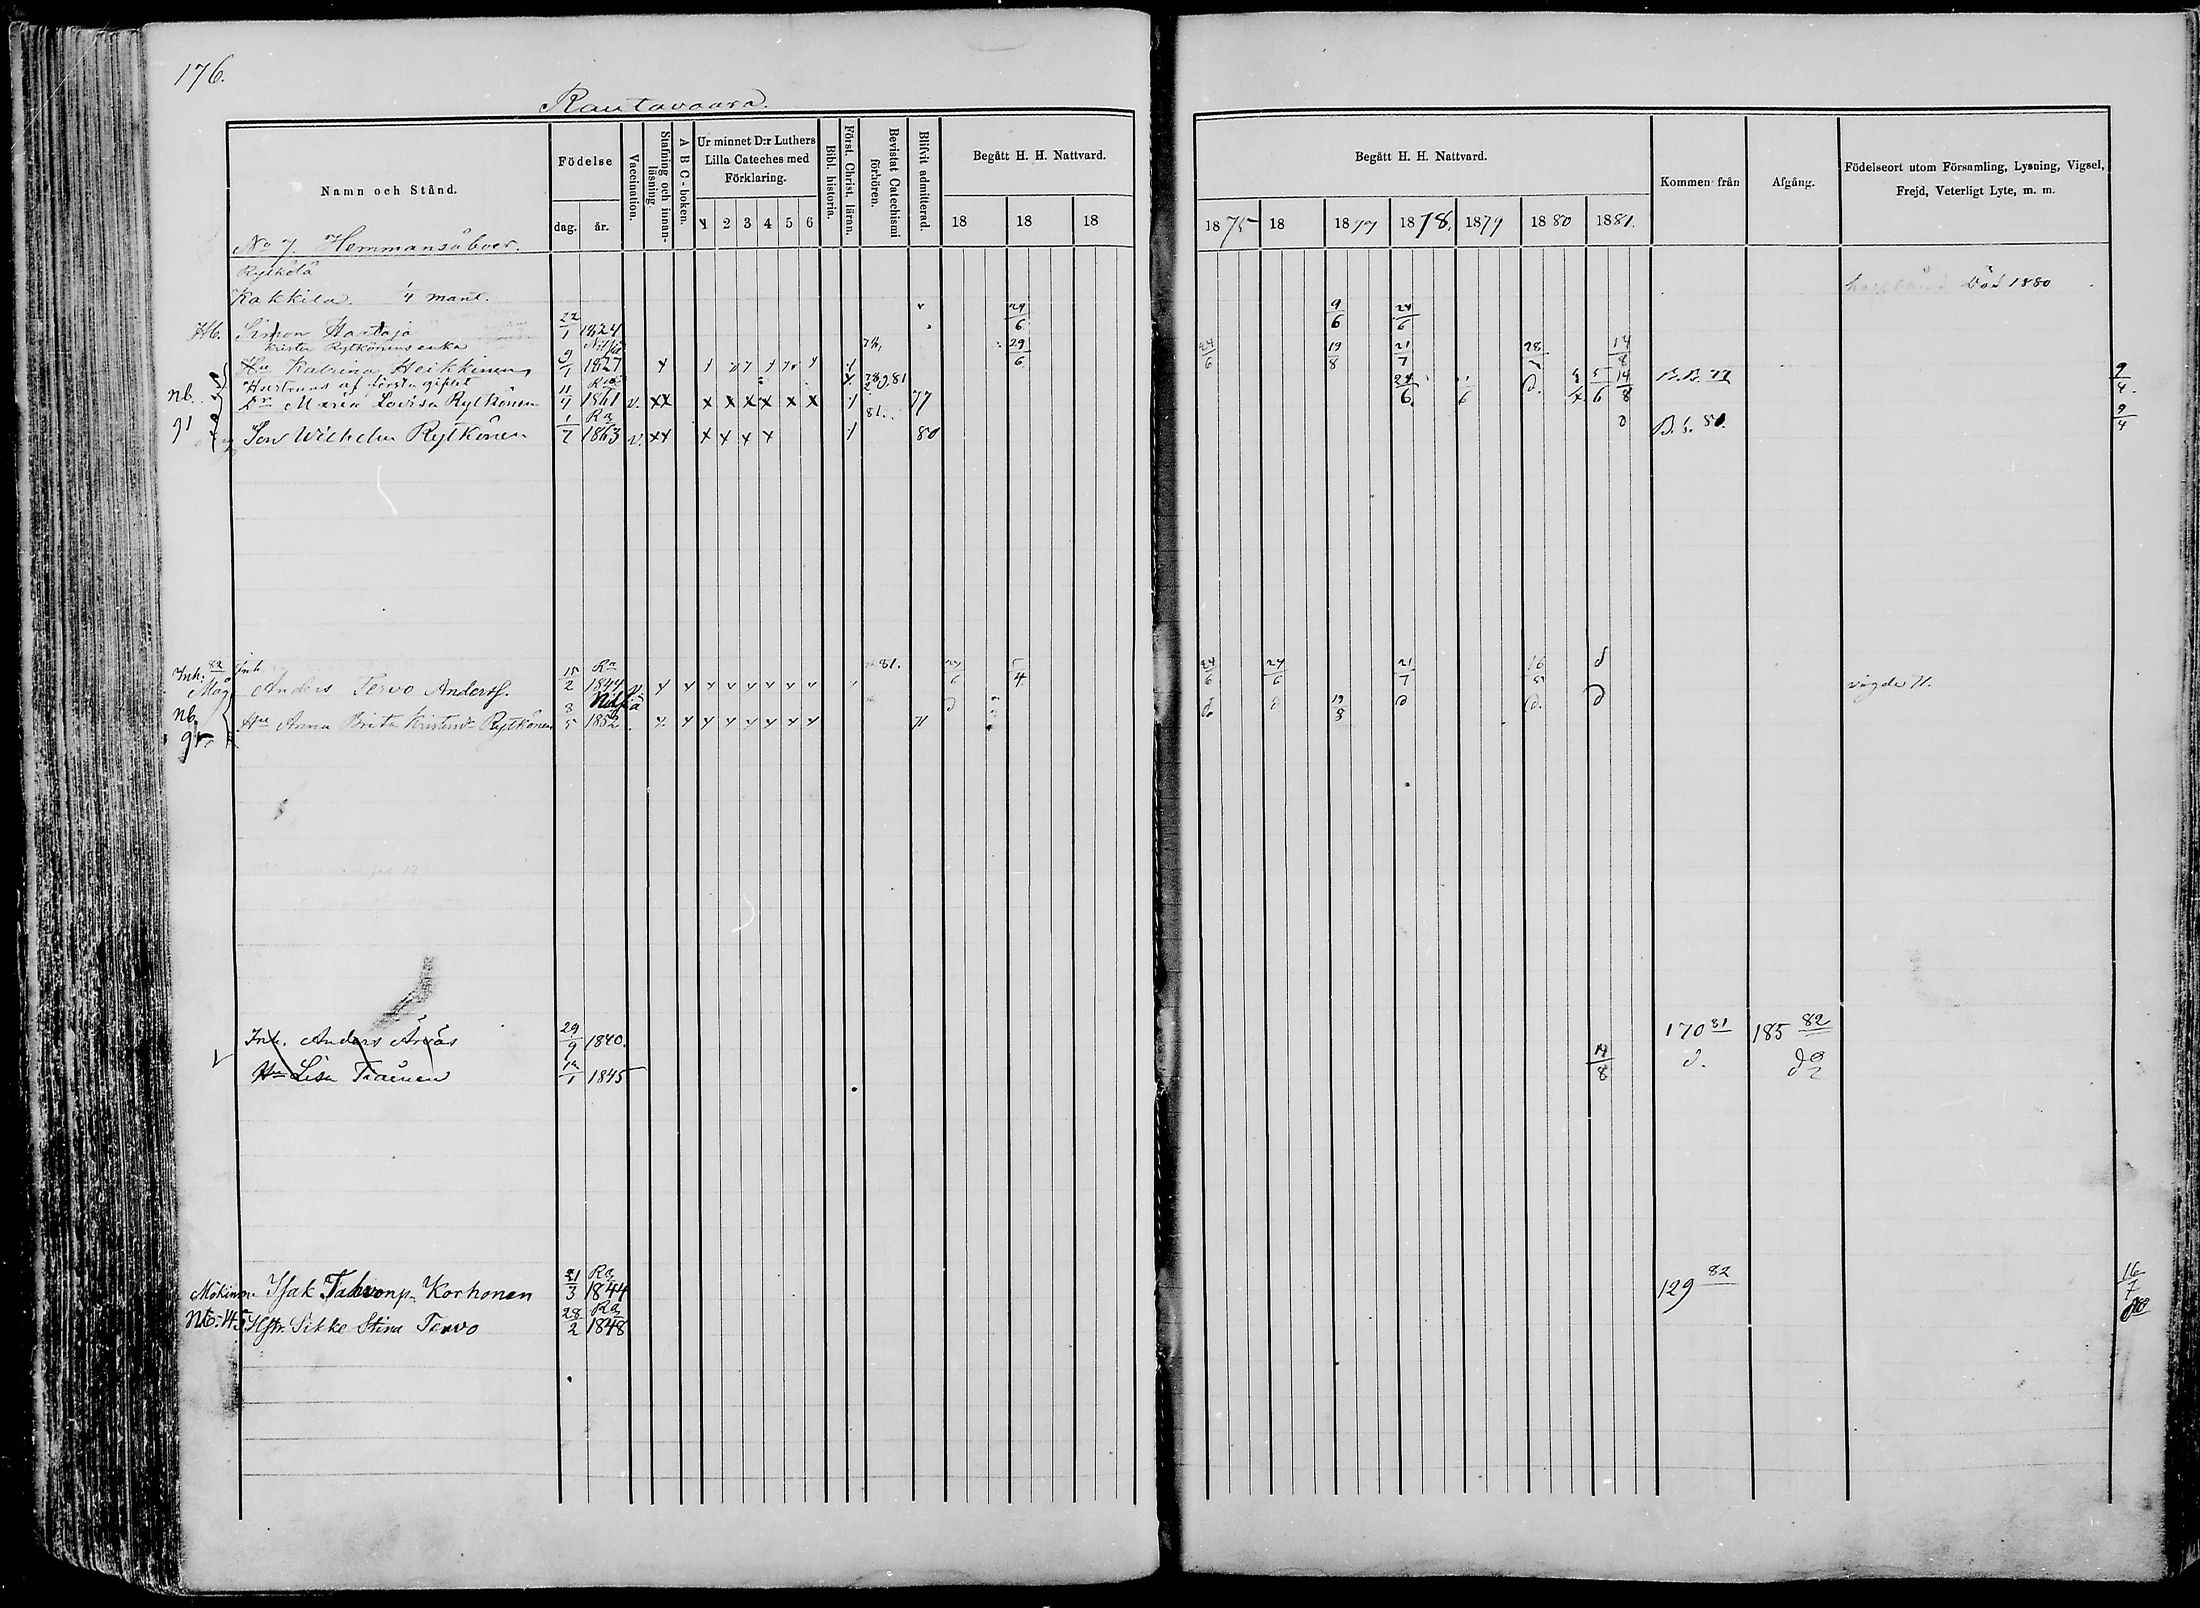 176.
Rautavaara.
Namn och Stånd.
Födelse
dag.
år.
Vaccination.
Stafning och innanläsning.
A B C-boken.
Ur minnet D:r Luthers Lilla Cateches med Förklaring.
1 2 3 4 5 6
Bibl. historia.
Först. Christ. läran.
Bevistat Catechismi förhören.
Blifvit admitterad.
Begått H. H. Nattvard.
18 18 18
Begått H. H. Nattvard.
1875 18 1877 1878. 1879 1880 1881.
Kommen från
Afgång.
Födelseort utom Församling, Lysning, Vigsel, Frejd, Veterligt Lyte, m. m.
No 7. Hemmansåboer.
Rytkölä
Kakkila. 1/4 mant.
Död 1880
Hb. Simon Hartaja 22/1 1824 29/6 9/6 24/6
Krister Rytkönens enka Nilsiä
Hu Katrina Heikkinen 9/1 1827 29/6 24/6 19/8 21/7 28 14/8
Hustruns af första giftet
nb. Dr Maria Lovisa Rytkönen 11/4 1861 v. xx x x x x x x 77 24/6 1/6 d. 5/6 14/8 B.B. 77 9/4
Ra
91 Son Wilhelm Rytkönen 1/7 1863 v. xx x x x x 81. 80 B. 80. 9/4
Inh. 82 Inh.
Mag Anders Tervo Andersf. 15/2 Ra 1844 81. 5/4 24/6 24/6 21/7 16 d vigde 71.
nb. Hu Anna Brita Kristersdr Rytkönen 8/5 Nilsiä 1852 71 d do d 19/8 d d. d
gr.
Inh. Anders Ärväs 29/9 1840. 170 81 185 82
Hu Lisa Tiainen 1845 14/8 d. do
Mökinm. Isak Tahvonp. Korhonen 21/3 Ra 1844 129 82 16/7
Nb: 45 Hstr. Sikke Stina Tervo 28/2 Ra 1848